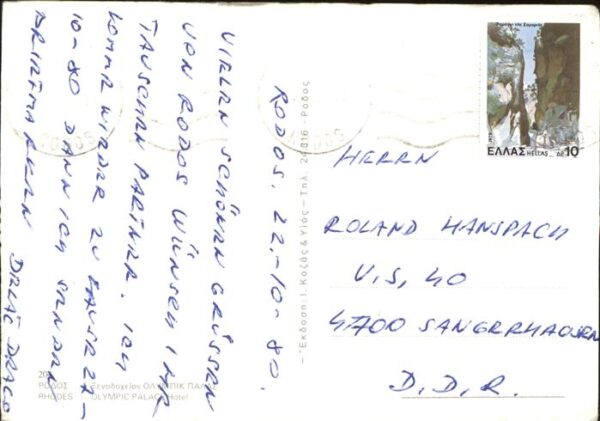 RODOS. 22.-10-80.
VIELEN SCHÖNEN GRÜSSEN
VON RODOS WÜNSCH IHR
TAUSCHEN PARTNER. ICH
KOMME WIEDER ZU HAUSE 27-
10-80 DANN ICH SENDEN
BRIEFMARKEN
DRAGO
HERRN
ROLAND HANSPACH
V.S. 40
4700 SANGERHAUSEN
D.D.R.
Φαράγγι της Σαμαριάς
1979
ΕΛΛΑΣ HELLAS ΔΡ 10
RODOS
Ἔκδοση: Ι. Κοζᾶς & Υἱός – Τηλ. 24.816 - Ρόδος
ΡΟΔΟΣ Ξενοδοχεῖον ΟΛΥΜΠΙΚ ΠΑΛΑΣ
RHODES OLYMPIC PALACE Hotel